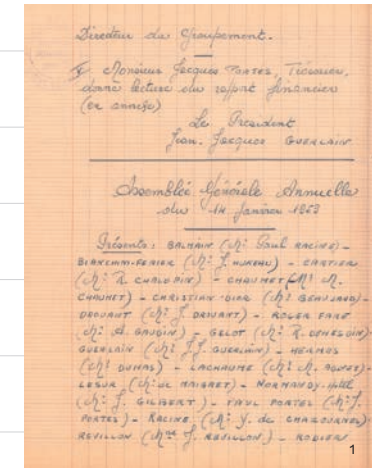 Directeur du Groupement.
Monsieur Jacques PORTES, Trésorier,
donne lecture du rapport financier
(en annexe)
Le Président
Jean. Jacques GUERLAIN
Assemblée Générale Annuelle
du 14 Janvier 1953
Présents : BALMAIN (Mr Paul RACINE) -
BLANCHINI-FERIER (Mr J. HUREAU) - CARTIER
(Mr R. CHALOPIN) - CHAUMET (Mr M.
CHAUMET) - CHRISTIAN-DIOR (Mr BEAUJARD) -
DROUANT (Mr J. DROUANT) - ROGER FARE
(Mr A. GAUDIN) - GELOT (Mr R. DENESDIN)
GUERLAIN (Mr J.J. GUERLAIN) - HERMES
(Mr DUMAS) - LACHAUME (Mr M.
LESUR (Mr de MAIGRET) - NORMANDY-Hôtel
(Mr J. GILBERT) - PAUL PORTES (Mr J.
PORTES) - RACINE (Mr Y. de CHABOURNES) -
REVILLON (Mme J. REVILLON) - RODIER
1